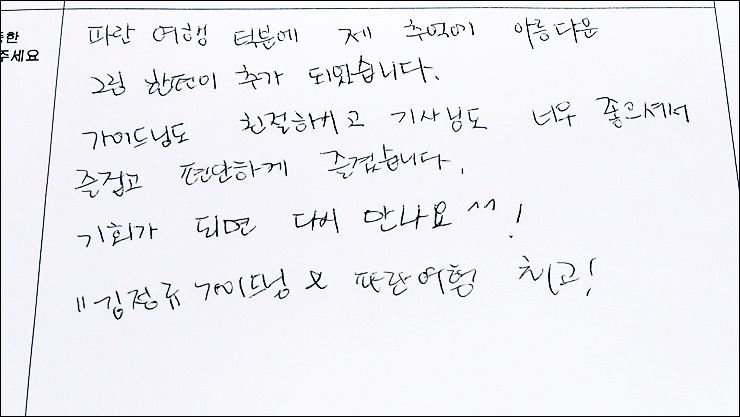 한
주세요
파란 여행 덕분에 제 추억에 아름다운
그림 한편이 추가 되었습니다.
가이드님도 친절하시고 기사님도 너무 좋으셔서
즐겁고 편안하게 즐겼습니다.
기회가 되면 다시 만나요 ^^!
"김정규 가이드님 & 파란여행 최고!